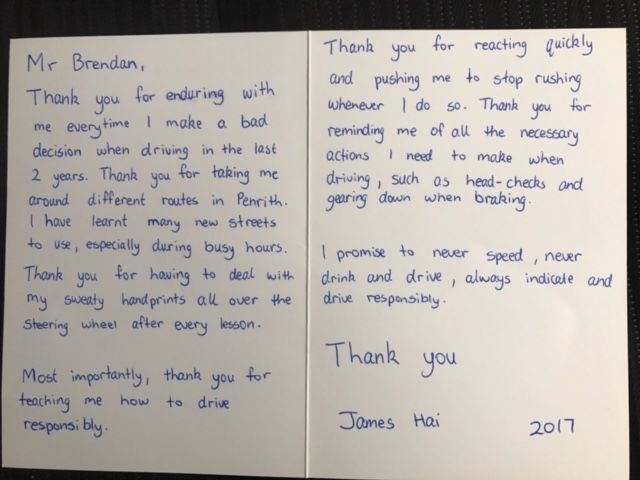 Mr Brendan,
Thank you for enduring with
me everytime I make a bad
decision when driving in the last
2 years. Thank you for taking me
around different routes in Penrith.
I have learnt many new streets
to use, especially during busy hours.
Thank you for having to deal with
my sweaty handprints all over the
steering wheel after every lesson.
Most importantly, thank you for
teaching me how to drive
responsibly.
Thank you for reacting quickly
and pushing me to stop rushing
whenever I do so. Thank you for
reminding me of all the necessary
actions I need to make when
driving, such as head-checks and
gearing down when braking.
I promise to never speed, never
drink and drive, always indicate and
drive responsibly.
Thank you
James Hai 2017